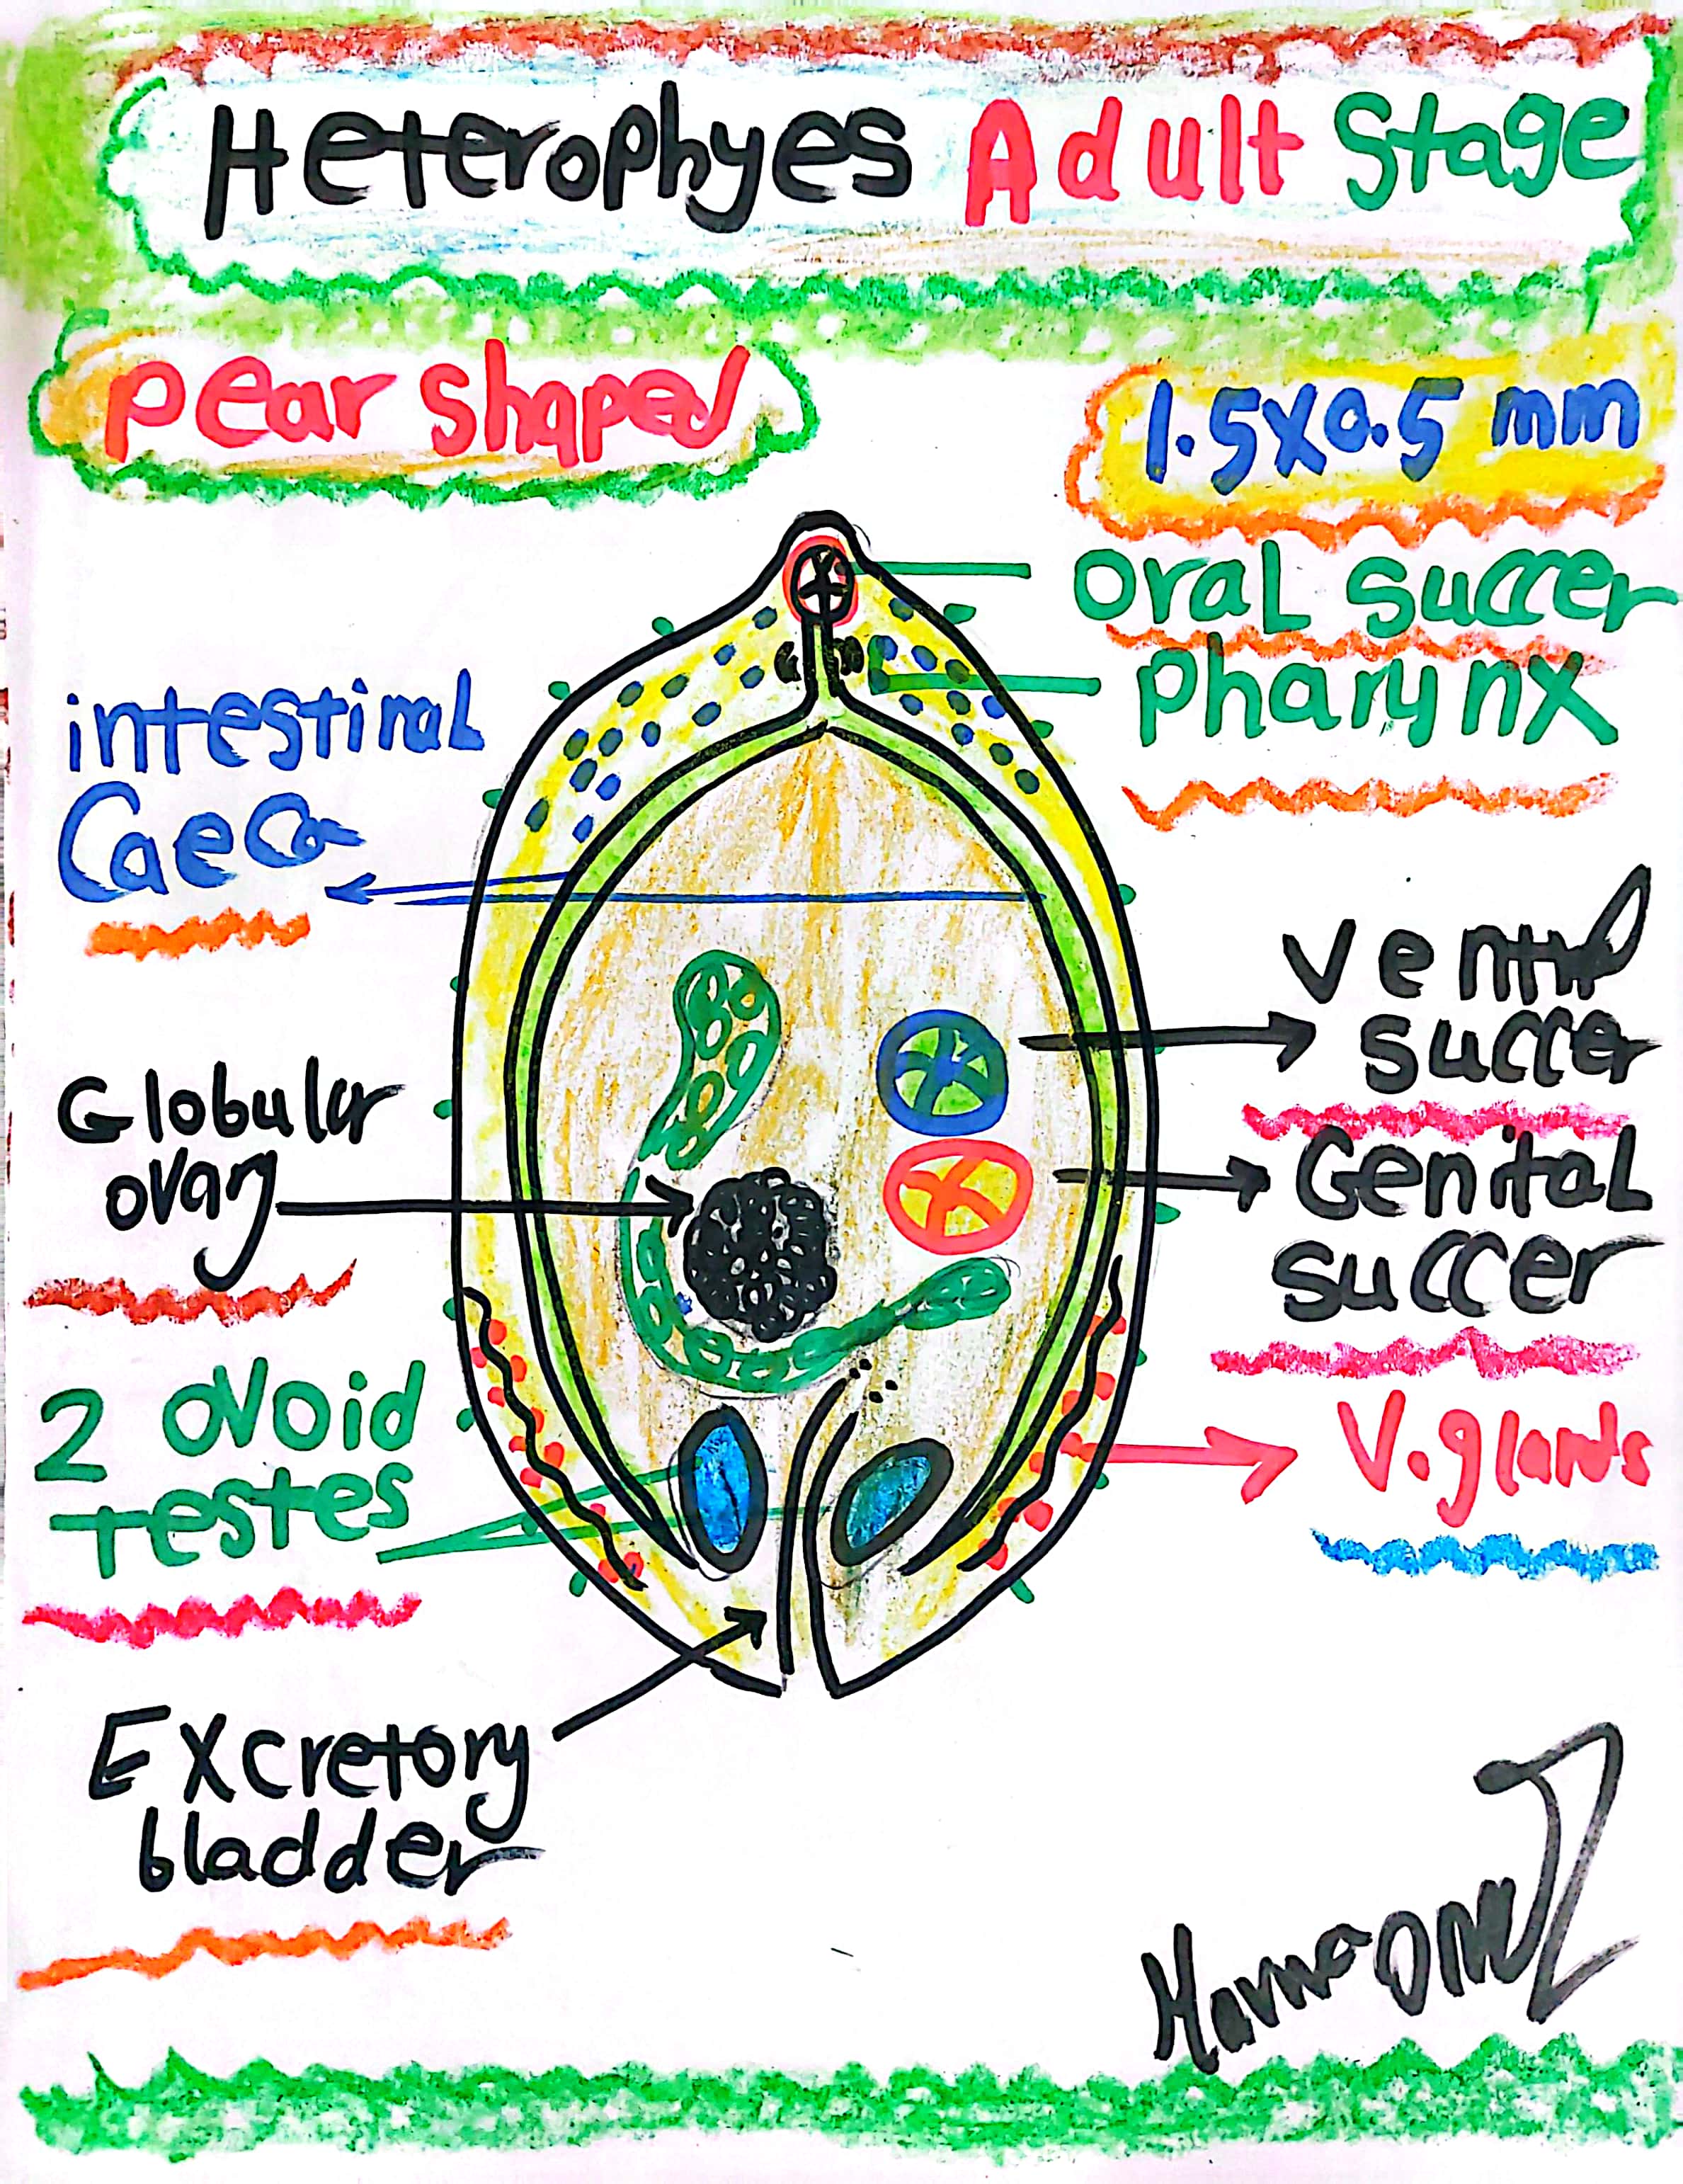 Heterophyes Adult Stage
pear shaped
1.5x0.5 mm
oral succer
pharynx
intestinal
Caeca
ventral
succer
Globular
ovary
Genital
succer
2 ovoid
testes
V.glands
Excretory
bladder